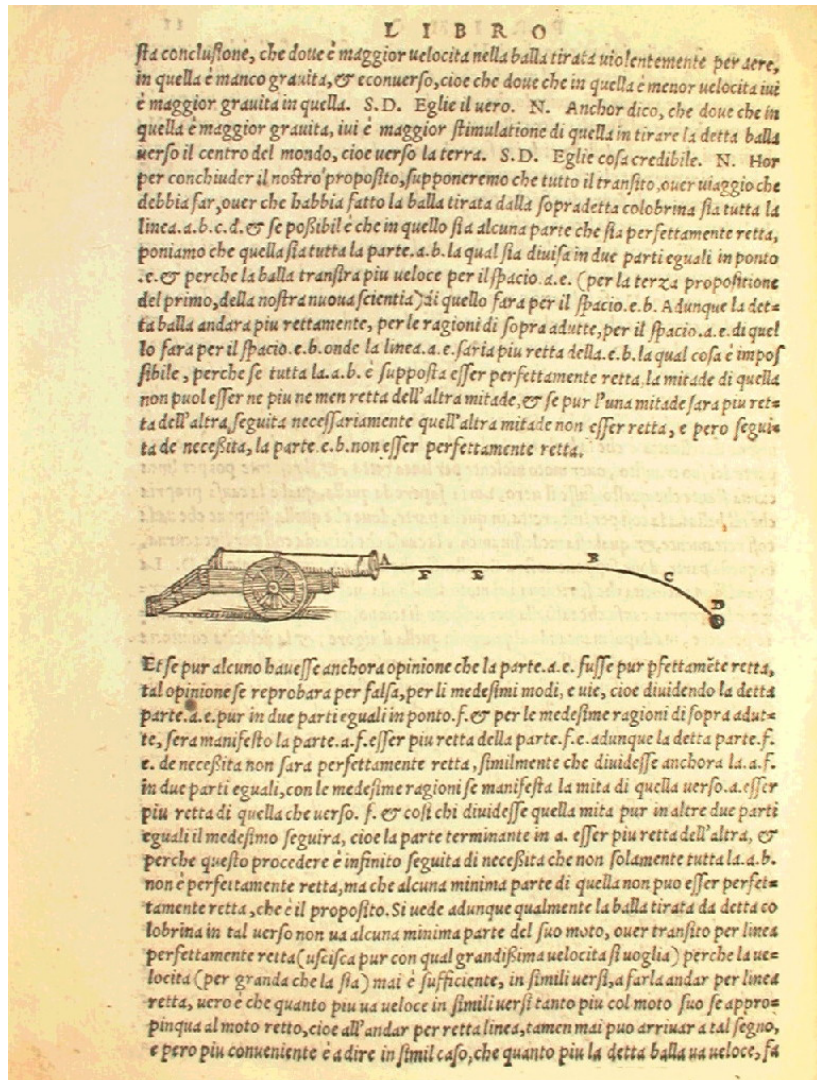 LIBRO
sta conclusione, che doue è maggior uelocita nella balla tirata uiolentemente per aere,
in quella è manco grauita, & econuerso, cioe che doue che in quella è menor uelocita iui
è maggior grauita in quella. S.D. Eglie il uero. N. Anchor dico, che doue che in
quella è maggior grauita, iui è maggior stimulatione di quella in tirare la detta balla
uerso il centro del mondo, cioe uerso la terra. S.D. Eglie cosa credibile. N. Hor
per conchiuder il nostro proposito, supponeremo che tutto il transito, ouer uiaggio che
debbia far, ouer che habbia fatto la balla tirata dalla sopradetta colobrina sia tutta la
linea.a.b.c.d.& se poßibil è che in quello sia alcuna parte che sia perfettamente retta,
poniamo che quella sia tutta la parte.a.b.la qual sia diuisa in due parti eguali in ponto
.e.& perche la balla transira piu ueloce per il spacio.a.e. (per la terza propositione
del primo, della nostra nuoua scientia) di quello fara per il spacio.e.b. Adunque la det=
ta balla andara piu rettamente, per le ragioni di sopra adutte, per il spacio.a.e.di quel
lo fara per il spacio.e.b.onde la linea.a.e.saria piu retta della.e.b.la qual cosa è impos
sibile, perche se tutta la.a.b. è supposta esser perfettamente retta la mitade di quella
non puol esser ne piu ne men retta dell'altra mitade,& se pur l'una mitade sara piu ret=
ta dell'altra, seguita necessariamente quell'altra mitade non esser retta, e pero segui=
ta de neceßita, la parte.e.b.non esser perfettamente retta.
A F E B C D
Et se pur alcuno hauesse anchora opinione che la parte.a.e. fusse pur pfettamēte retta,
tal opinione se reprobara per falsa, per li medesimi modi, e uie, cioe diuidendo la detta
parte.a.e.pur in due parti eguali in ponto.f.& per le medesime ragioni di sopra adut=
te, sera manifesto la parte.a.f.esser piu retta della parte.f.e.adunque la detta parte.f.
e. de neceßita non sara perfettamente retta, similmente che diuidesse anchora la.a.f.
in due parti eguali, con le medesime ragioni se manifesta la mita di quella uerso.a.esser
piu retta di quella che uerso. f. & cosi chi diuidesse quella mita pur in altre due parti
eguali il medesimo seguira, cioe la parte terminante in a. esser piu retta dell'altra, &
perche questo procedere è infinito seguita di neceßita che non solamente tutta la.a.b.
non è perfettamente retta, ma che alcuna minima parte di quella non puo esser perfet=
tamente retta, che è il proposito. Si uede adunque qualmente la balla tirata da detta co
lobrina in tal uerso non ua alcuna minima parte del suo moto, ouer transito per linea
perfettamente retta (uscisca pur con qual grandißima uelocita si uoglia) perche la ue=
locita (per granda che la sia) mai è sufficiente, in simili uersi, a farla andar per linea
retta, uero è che quanto piu ua ueloce in simili uersi tanto piu col moto suo se appro=
pinqua al moto retto, cioe all'andar per retta linea, tamen mai puo arriuar a tal segno,
e pero piu conueniente è a dire in simil caso, che quanto piu la detta balla ua ueloce, fa